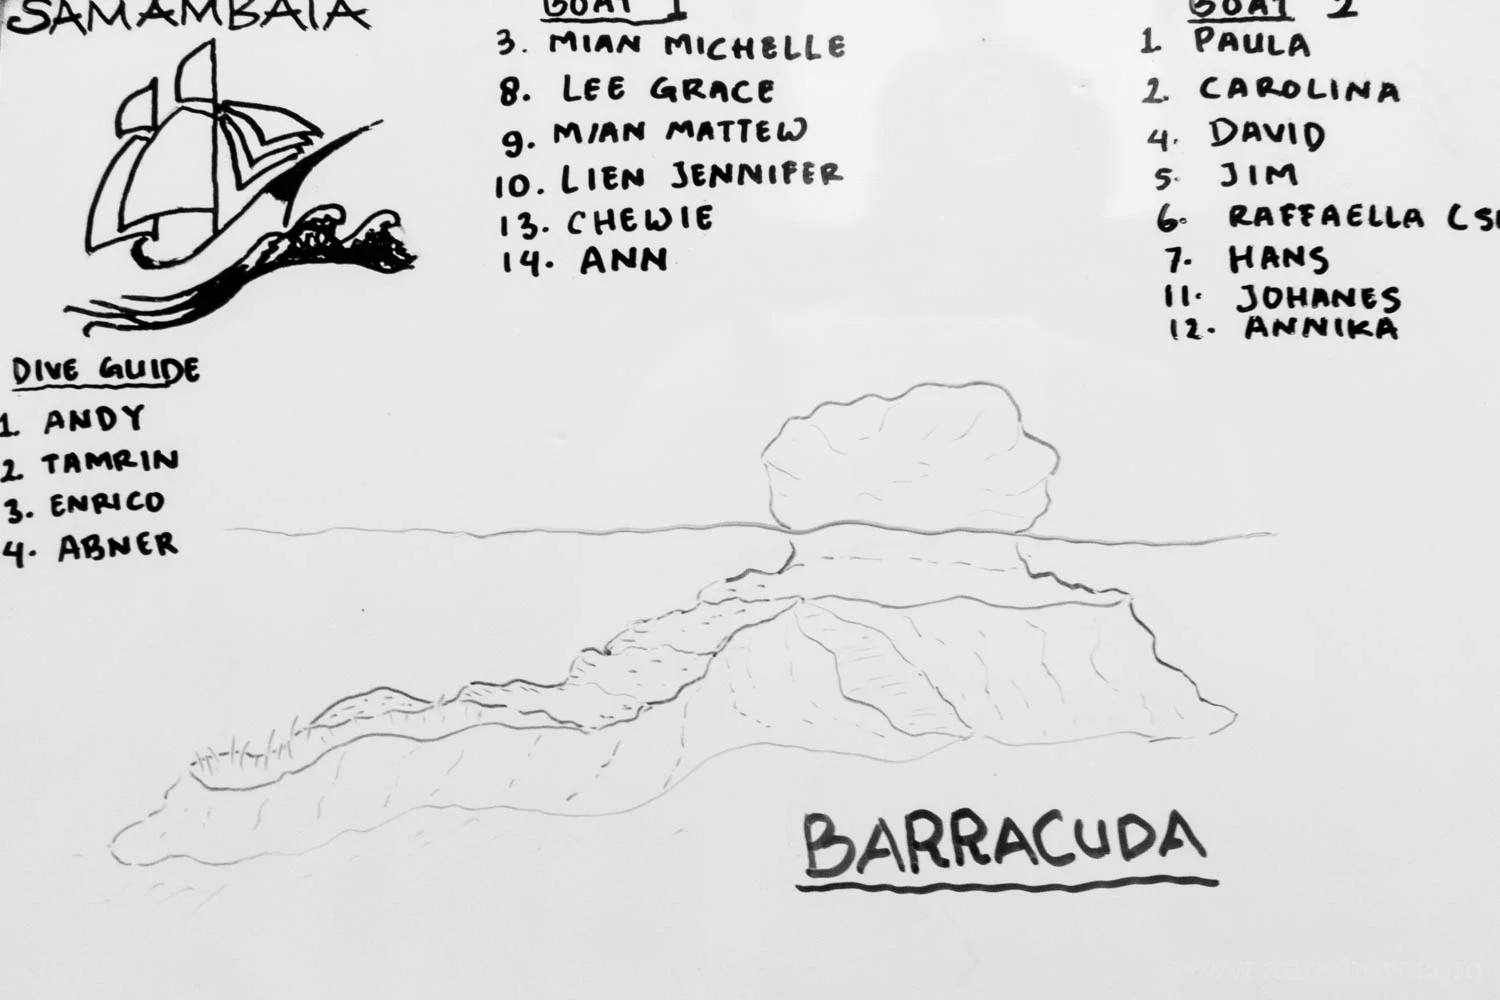 SAMAMBAIA
BOAT 1
3. MIAN MICHELLE
8. LEE GRACE
9. MIAN MATTEW
10. LIEN JENNIFER
13. CHEWIE
14. ANN
BOAT 2
1. PAULA
2. CAROLINA
4. DAVID
5. JIM
6. RAFFAELLA (
7. HANS
11. JOHANES
12. ANNIKA
DIVE GUIDE
1. ANDY
2. TAMRIN
3. ENRICO
4. ABNER
BARRACUDA